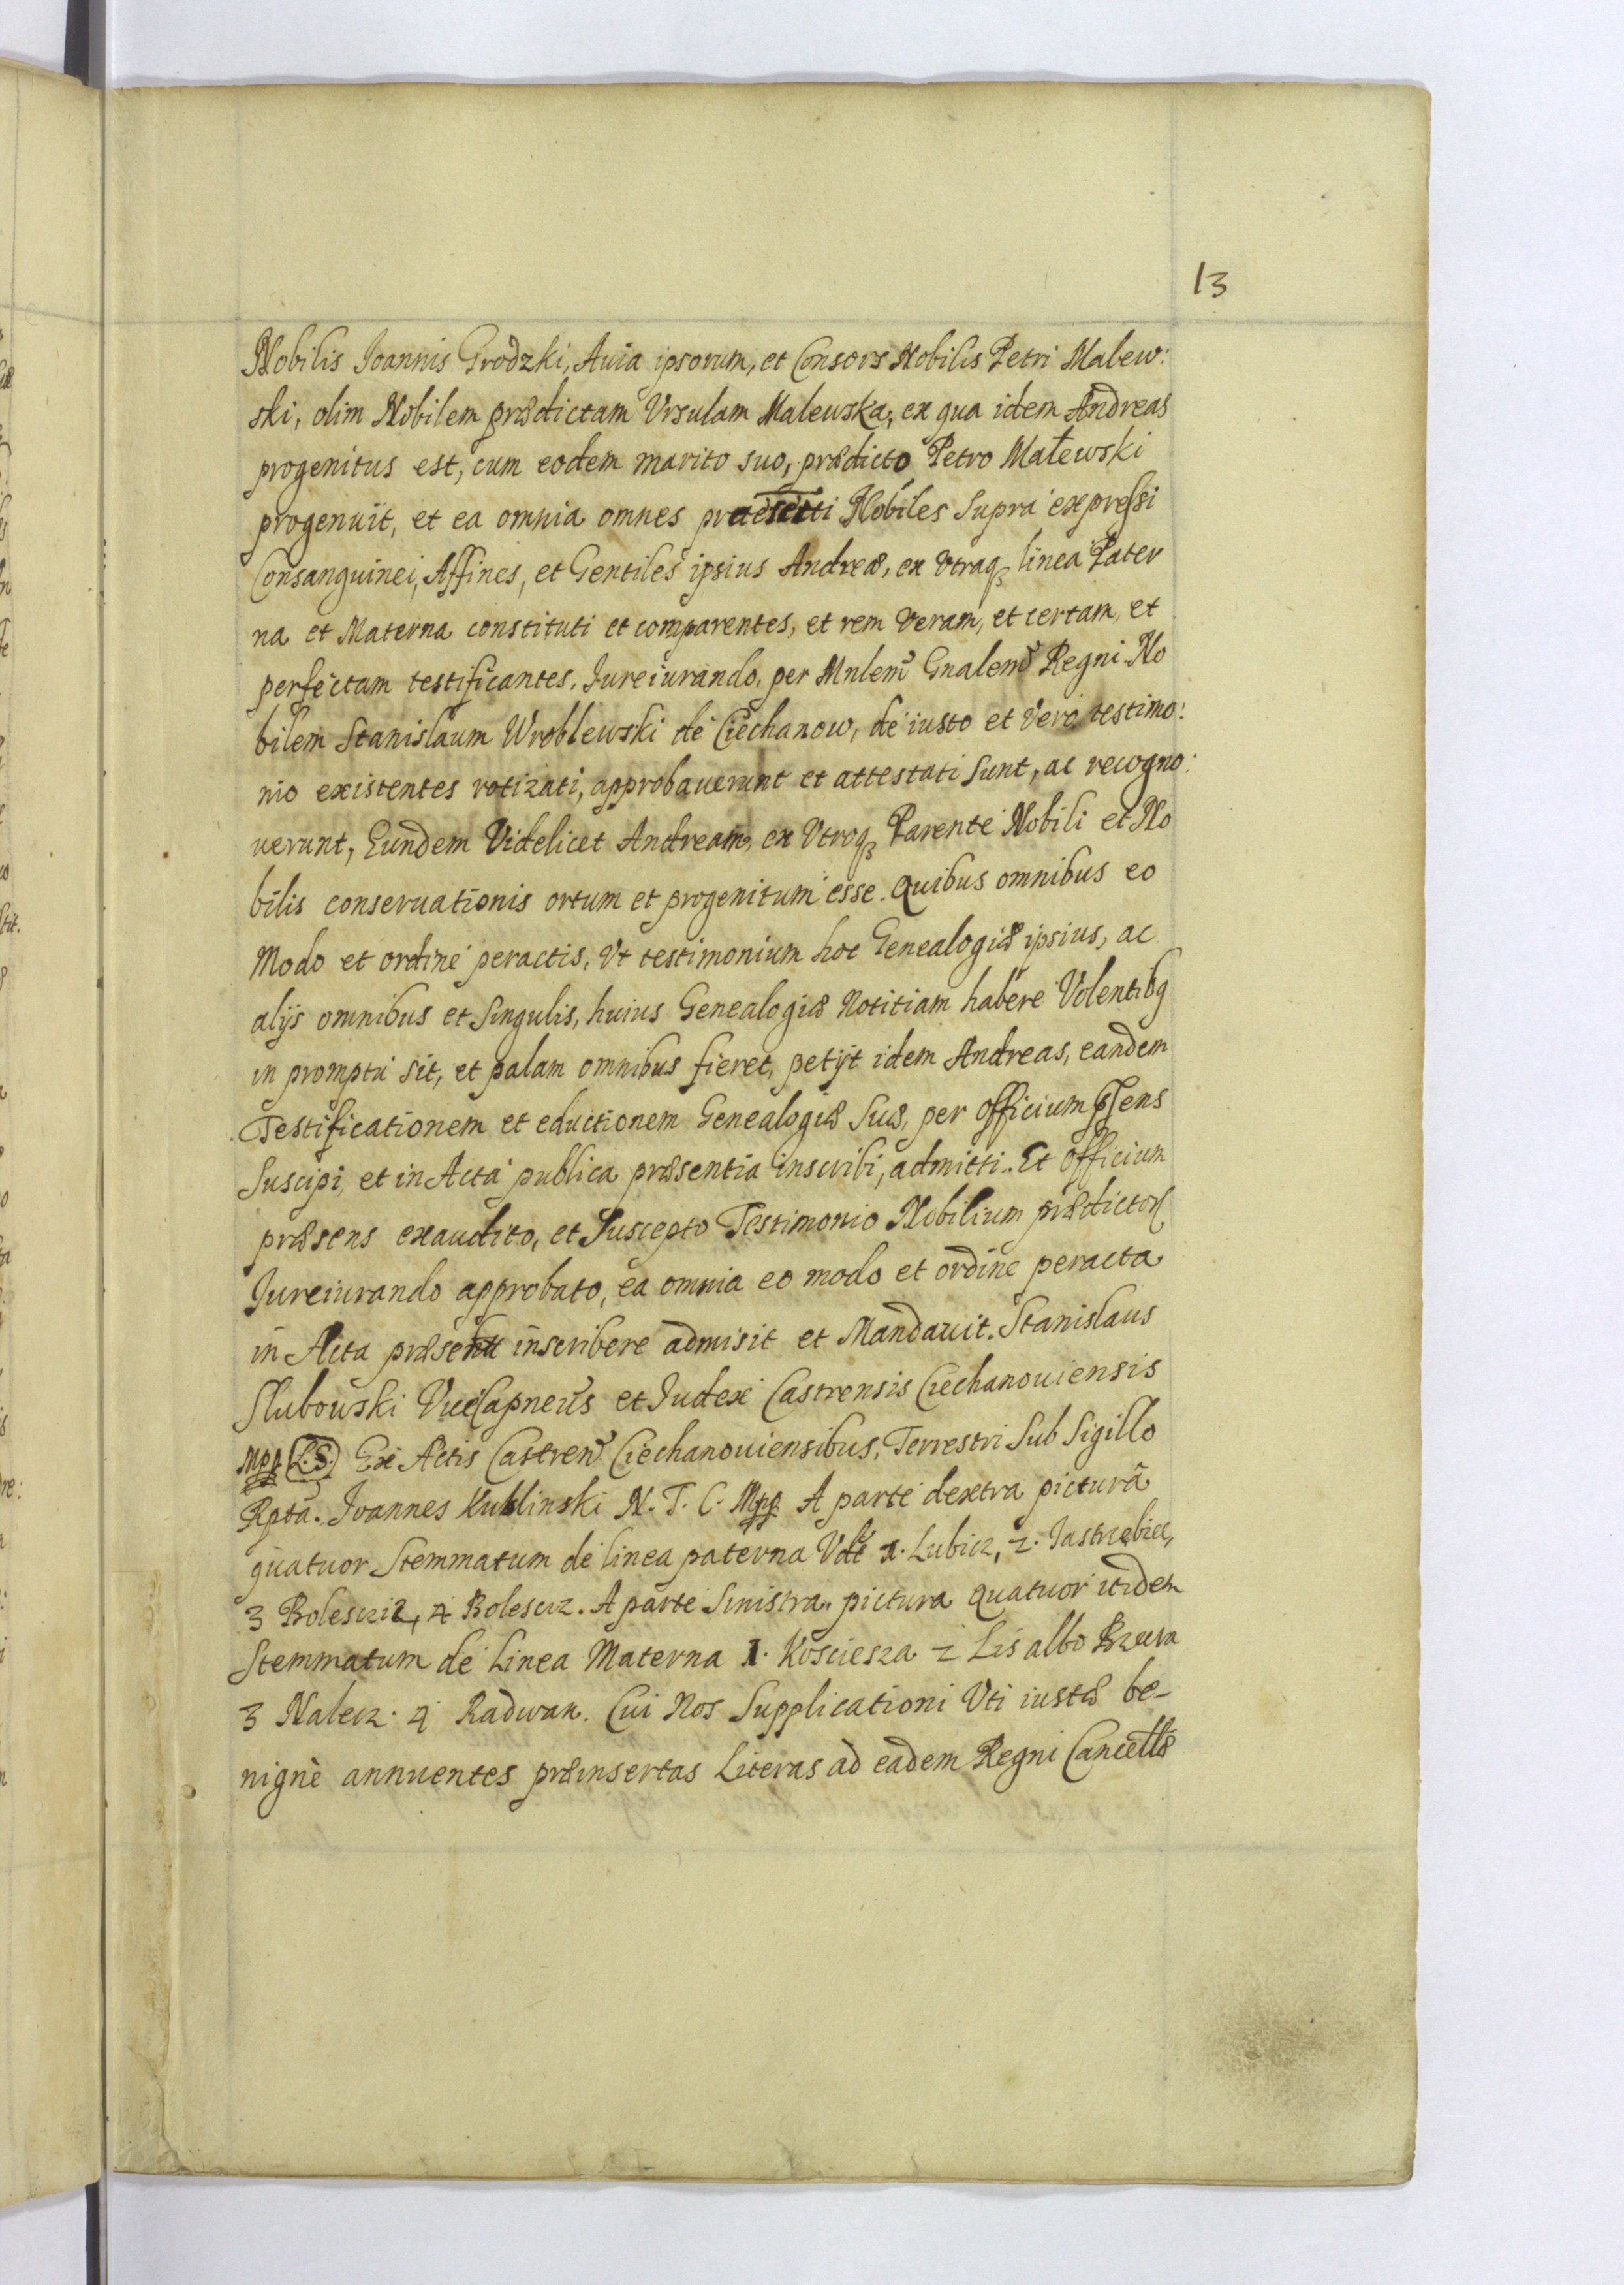 13
Nobilis Joannis Grodzki, Auia ipsorum, et Consors Nobilis Petri Malew:
ski, olim Nobilem prædictam Vrsulam Malewska, ex qua idem Andreas
progenitus est, cum eodem marito suo, prædicto Petro Małewski
progenuit, et ea omnia omnes Nobiles Supra expreſsi
Consanguinei, Affines, et Gentiles ipsius Andreæ, ex Vtraqꝫ linea Pater
na et Materna constituti et comparentes, et rem Veram, et certam, et
perfectam testificantes, Jureiurando, per Mnlem Gnalem Regni No
bilem Stanislaum Wroblewski de Ciechanow, de iusto et Vero testimo:
nio existentes rotizati, approbauerunt et attestati Sunt, ac recogno:
uerunt, Eundem Videlicet Andream, ex Vtroqꝫ Parente Nobili et No
bilis conseruationis ortum et progenitum esse. Quibus omnibus eo
Modo et ordine peractis, Vt testimonium hoc Genealogiæ ipsius, ac
alijs omnibus et Singulis, huius Genealogiæ Notitiam habere Volentibꝫ
in promptu sit, et palam omnibus fieret, petijt idem Andreas, eandem
Testificationem et eductionem Genealogiæ Suæ, per Officium pſens
Suscipi, et in Acta publica præsentia inscribi, admitti. Et Officium
præsens exaudito, et Suscepto Testimonio Nobilium prædictoꝝ
Jureiurando approbato, ea omnia eo modo et ordine peracta
in Acta inscribere admisit et Mandavit. Stanislaus
Slubowski ViceCapneus et Judex Castrensis Ciechanouiensis
Mpp (L.S.) Ex Actis Castren Ciechanouiensibus, Terrestri Sub Sigillo
Rpta. Joannes Kuklinski N. T. C. Mpp A parte dextra picturâ
quatuor Stemmatum de linea paterna Vdt 1. Lubicz, 2. Jastrzębiec,
3 Bolescziz, 4 Bolescz. A parte Sinistra pictura quatuor itidem
Stemmatum de Linea Materna 1. Kosciesza 2 Lis albo Bzura
3 Nalecz. 4 Radwan. Cui Nos Supplicationi Vti iustæ be-
nignè annuentes præinsertas Literas ad eadem Regni Cancellæ